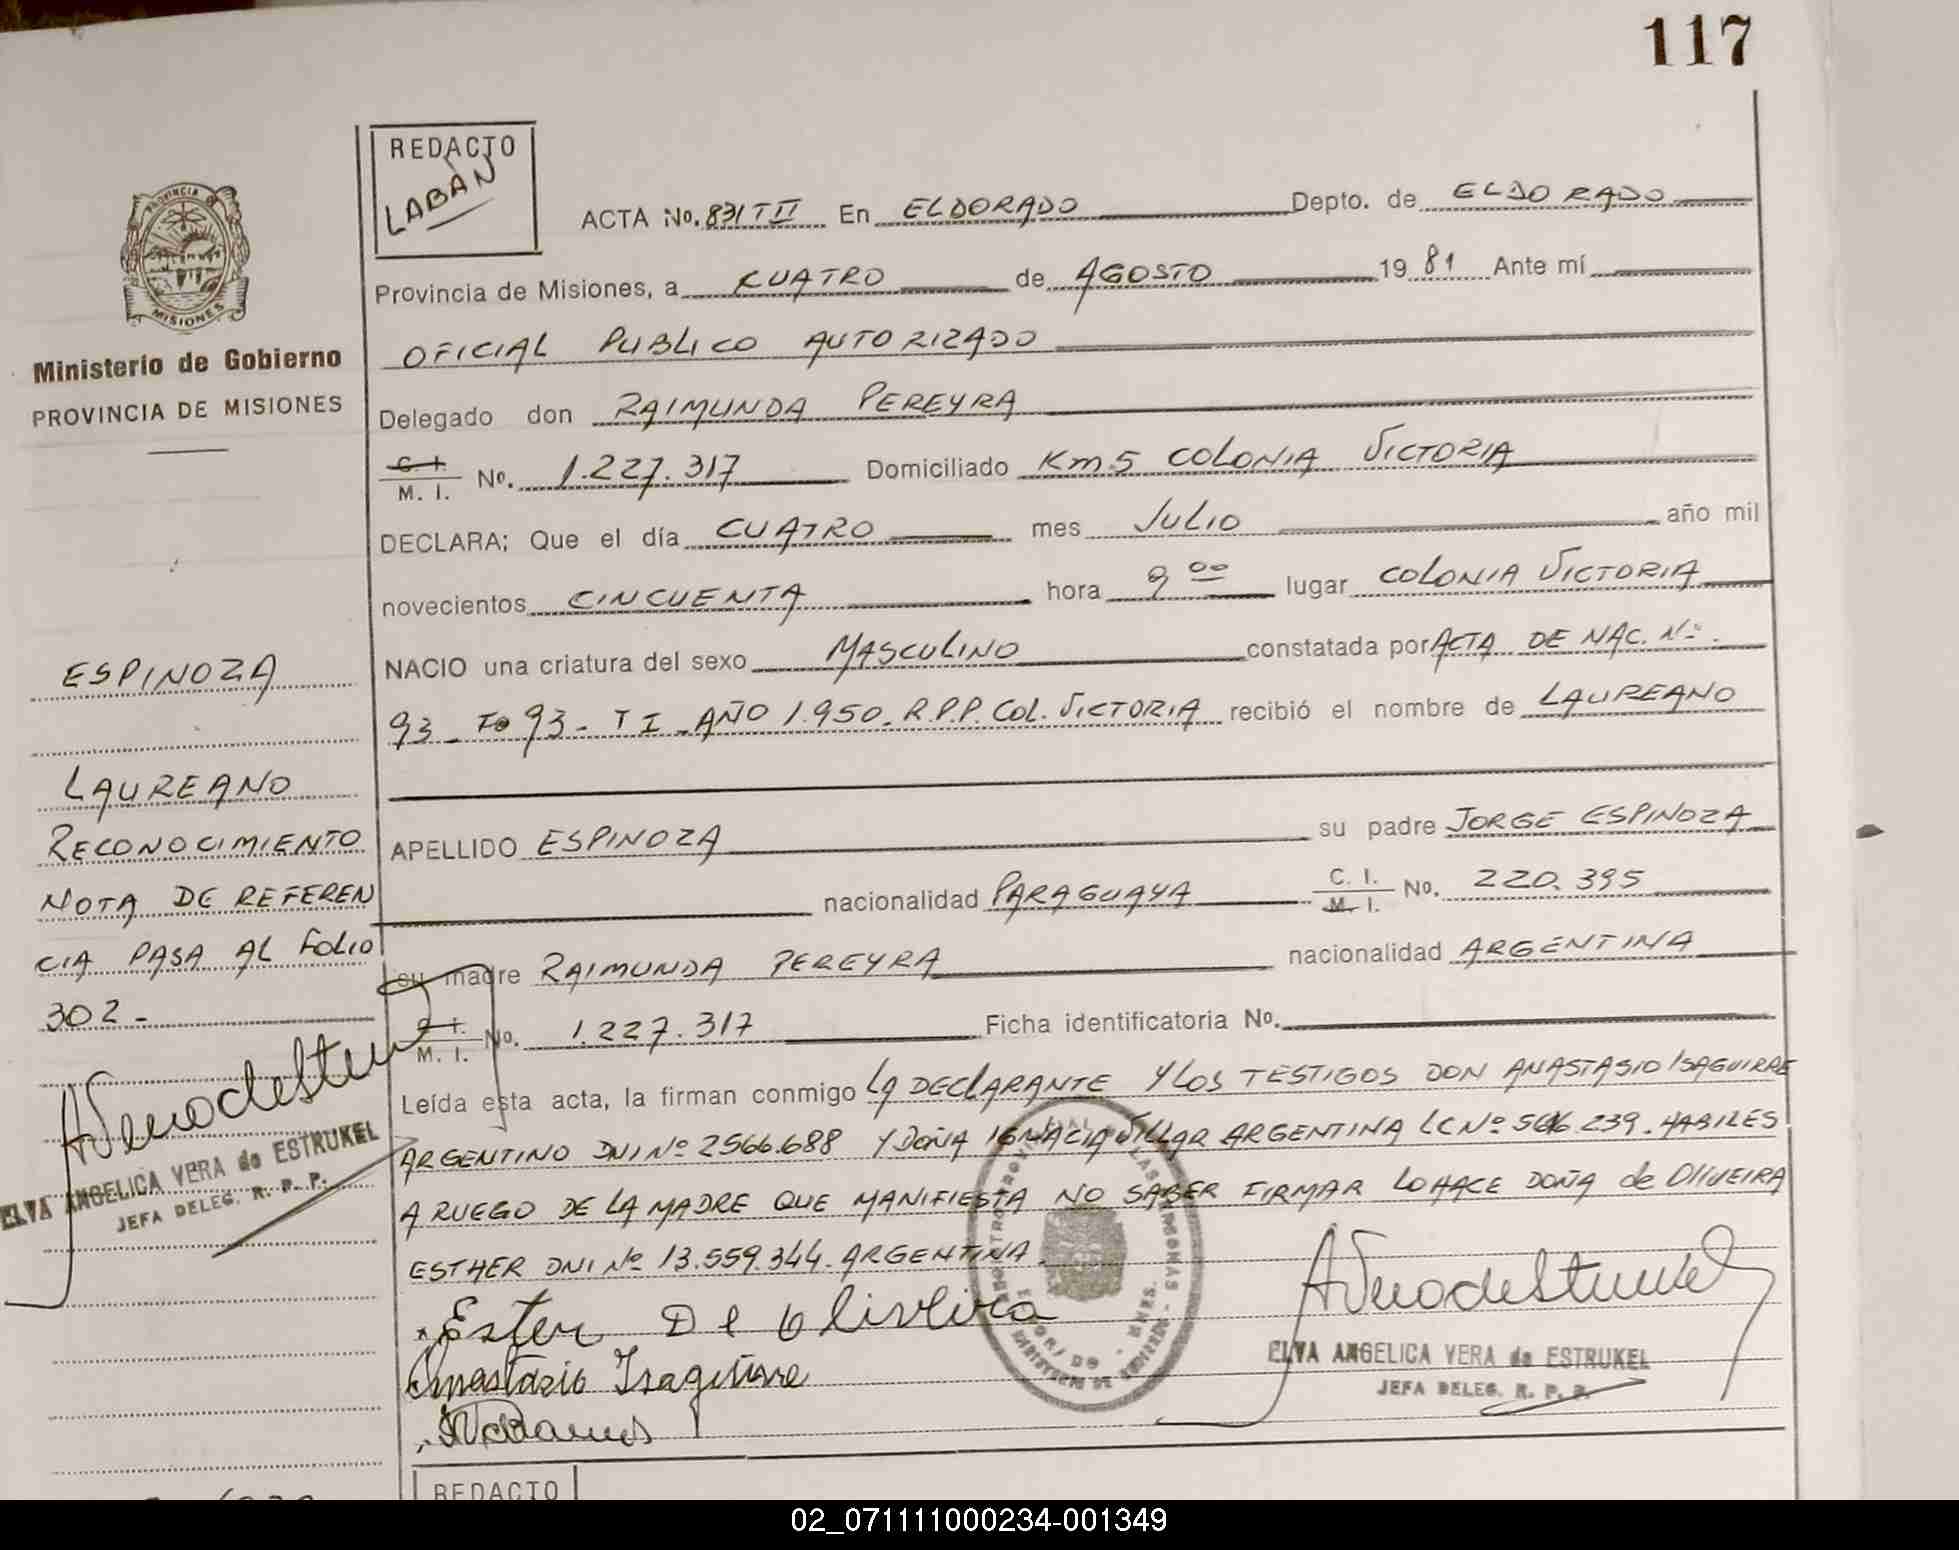 117
REDACTO
LABAN
ACTA No. 831 T II En ELDORADO Depto. de ELDORADO
Provincia de Misiones, a CUATRO de AGOSTO 19 81 Ante mí
OFICIAL PUBLICO AUTORIZADO
Delegado don RAIMUNDA PEREYRA
C. I.
M. I. No. 1.227.317 Domiciliado Km 5 COLONIA VICTORIA
DECLARA; Que el día CUATRO mes JULIO año mil
novecientos CINCUENTA hora 9 00 lugar COLONIA VICTORIA
NACIO una criatura del sexo MASCULINO constatada por ACTA DE NAC. Nº.
93 - Fo 93 - T I - AÑO 1.950. R.P.P. COL. VICTORIA recibió el nombre de LAUREANO
APELLIDO ESPINOZA su padre JORGE ESPINOZA
nacionalidad PARAGUAYA C. I.
M. I. No. 220.395
su madre RAIMUNDA PEREYRA nacionalidad ARGENTINA
C. I.
M. I. No. 1.227.317 Ficha identificatoria No.
Leída esta acta, la firman conmigo LA DECLARANTE Y LOS TESTIGOS DON ANASTASIO ISAGUIRRE
ARGENTINO DNI Nº 2566.688 Y DOÑA IGNACIA VILLAR ARGENTINA LC Nº 239. HABILES
A RUEGO DE LA MADRE QUE MANIFIESTA NO SABER FIRMAR LO HACE DOÑA de OLIVEIRA
ESTHER DNI Nº 13.559.344. ARGENTINA.
Ester De Oliveira
Anastazio Isaguirre
ELVA ANGELICA VERA de ESTRUKEL
JEFA DELEG. R. P. P.
PROVINCIA
MISIONES
Ministerio de Gobierno
PROVINCIA DE MISIONES
ESPINOZA
LAUREANO
RECONOCIMIENTO
NOTA DE REFEREN
CIA PASA AL FOLIO
302 -
ELVA ANGELICA VERA de ESTRUKEL
JEFA DELEG. R. P. P.
REDACTO
02_071111000234-001349